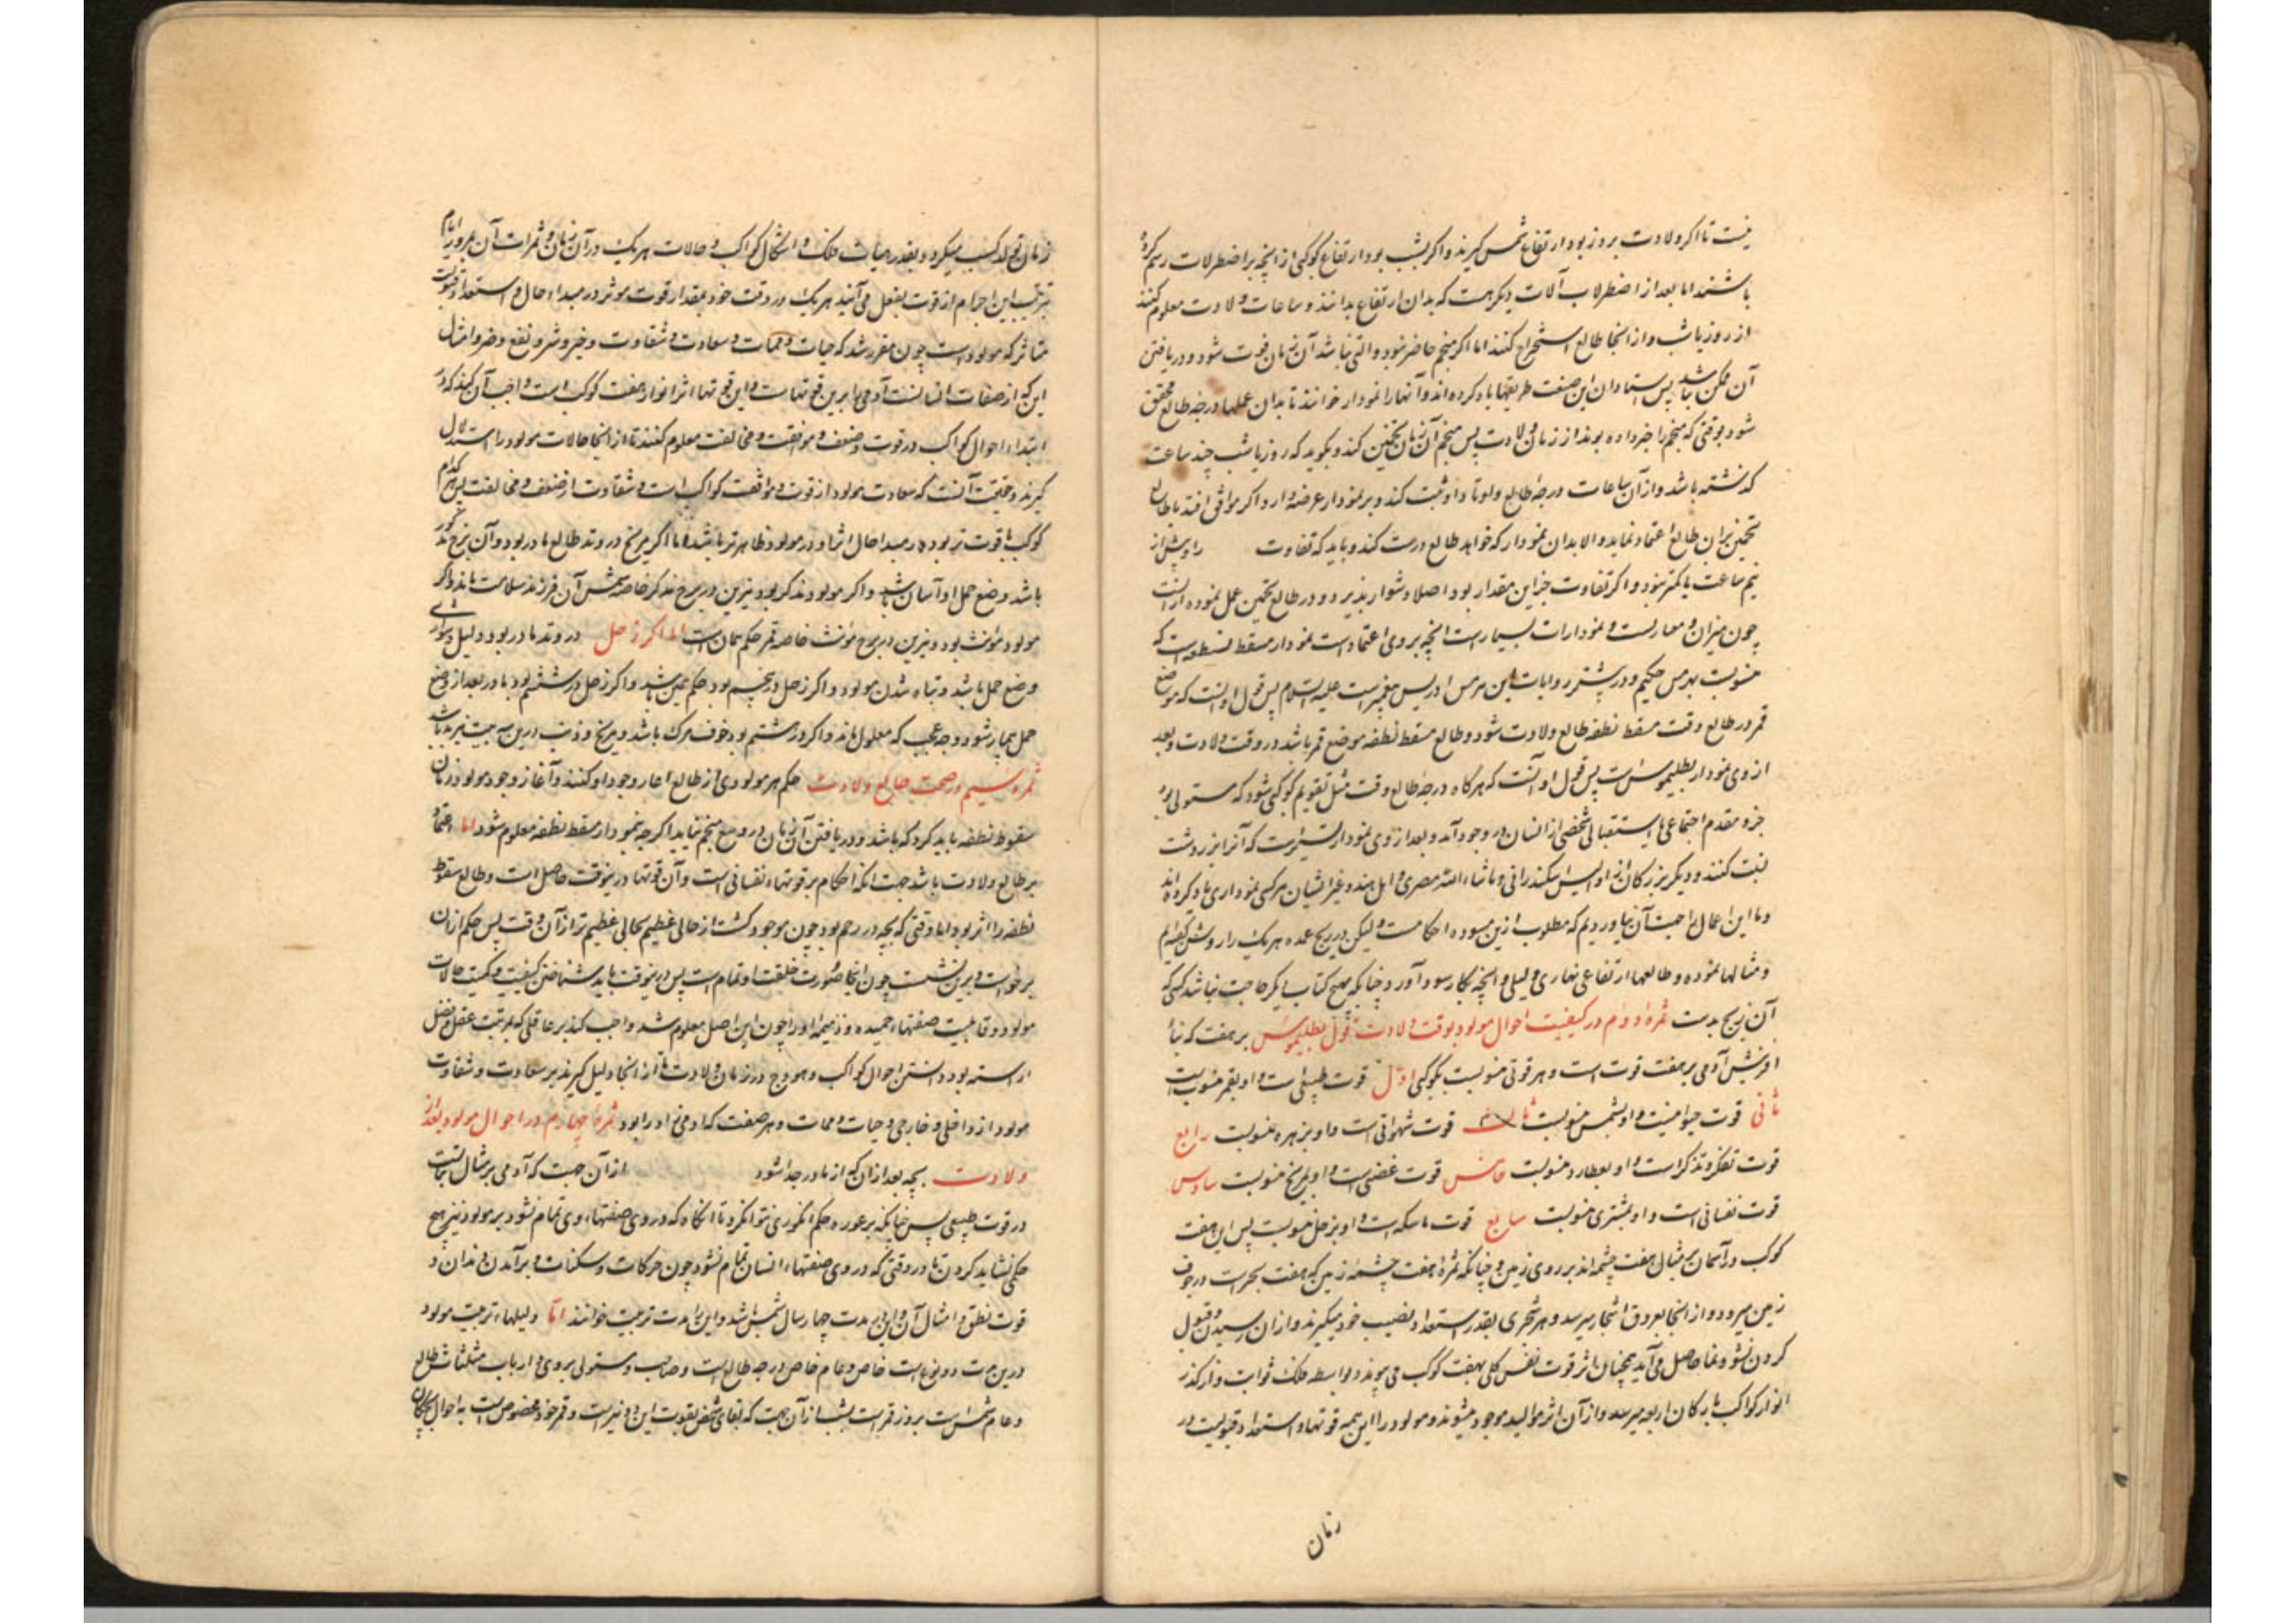 نیست تا اکر ولادت بروز بود ارتفاع شمس کیرند و اکر بشب بود ارتفاع کوکبی از انچه بر اضطرلاب رسم کرده
باشند اما بعد از اضطرلاب آلات دیکر هست که بدان ارتفاع بدانند و ساعات ولادت معلوم کنند
از روز یا شب و از انجا طالع استخراج کنند اما اکر منجم حاضر نبود و التی نباشد آن زمان فوت شود و دریافتن
آن ممکن نباشد پس استادان این صنعت طریقها یاد کرده اند و آنها را نمودار خوانند تا بدان عملها درجه طالع محقق
شود بوقتی که منجم را خبر داده بوند از زمان ولادت پس منجم آن زمان تخمین کند و بکوید که روز یا شب چند ساعت
کذشته باشد و از آن ساعات درجه طالع و اوتاد او ثبت کند و بر نمودار عرضه دارد اکر موافق افتد با طالع
تخمین بران طالع اعتماد نماید و الا بدان نمودار که خواهد طالع درست کند و باید که تفاوت راوش از
نیم ساعت یا کمتر نبود و اکر تفاوت جز این مقدار بود اصلا دشوار پذیرد و در طالع تخمین عمل نموده
چون میزان و معاریست و نمودارات بسیار است انچه بر وی اعتماد است نمودار مسقط نطفه است که
منسوبست بهرمس حکیم و در بیشتر روایات این هرمس ادریس پیغمبر است علیه السلام پس قول او انست که موضع
قمر در طالع وقت مسقط نطفه طالع ولادت شود و طالع مسقط نطفه موضع قمر باشد در وقت ولادت و بعد
از وی نمودار بطلیموس است پس قول او آنست که هرکاه درجه طالع وقت مثل تقویم کوکبی شود که مستولی بود
جزو مقدم اجتماعی یا استقبالی شخصی از انسان در وجود آید و بعد از وی نمودار است که آنرا بزردشت
نسبت کنند و دیکر بزرکان از والیس اسکندرانی و ماشاء الله مصری و اهل هند و غیر ایشان هرکسی نموداری یاد کرده اند
و ما این اعمال را جهت آن نیاوردیم که مطلوب ازین مسوده احکامست ولیکن در زیج عمده هریک را روشن کفته ایم
و مثالها نموده و طالعها ارتفاعی نهاری و لیلی و انچه بکار رسد و آورد چنانکه بهیچ کتاب دیکر حاجت نباشد کسی که
آن زیج بدست ثمره دوم در کیفیت احوال مولود بوقت ولادت بقول بطلیموس بر هفت که بناء
افرینش آدمی بر هفت قوت است و هر قوتی منسوبست بکوکبی اول قوت طبیعی است و او بقمر منسوبست
ثانی قوت حیوانیست و او بشمس منسوبست ثالث قوت شهوانی است و او بزهره منسوبست رابع
قوت تفکر و تذکر است و او بعطارد منسوبست خامس قوت غضبی است و او بمریخ منسوبست سادس
قوت نفسانی است و او بمشتری منسوبست سابع قوت ماسکه است و او بزحل منسوبست پس این هفت
کوکب در آسمان بر مثال هفت چشمه اند بر روی زمین و چنانکه ثمره هفت چشمه زمین که هفت بحر است در جوف
زمین میرود و از انجا بعروق اشجار میرسد و هر شجری بقدر استعداد نصیب خود میکیرند و از ان رسیدن و قبول
کردن نشو و نما حاصل می آید همچنان اثر قوت نفس کلی بهفت کوکب می پیوندد بواسطه فلک ثوابت و از کذر
انوار کواکب بارکان اربعه میرسد و از آن اثر موالید موجود میشوند و مولود را این همه قوتها و استعداد و قبولیت در
زمان
زمان تولد کسب میکردد و بقدر هیآت فلک و اشکال کواکب و حالات هریک در آن زمان و ثمرات آن بمرور ایام
بترتیب این اجرام از قوت بفعل می آیند هریک در وقت خود بمقدار قوت موثر در مبداء حال و استعداد و قبولیت
متاثر که مولود است چون مقرر شد که حیات و ممات و سعادت و شقاوت و خیر و شر و نفع و ضر و امثال
این که از صفات انسانست آدمی را برین قوتهاست و این قوتها اثر انوار هفت کوکب است واجب آن کند که در
ابتداء احوال کواکب در قوت و ضعف و موافقت و مخالفت معلوم کنند تا از انجا حالات مولود را استدلال
کیرند و حقیقت آنست که سعادت مولود از قوت و موافقت کواکب است و شقاوت از ضعف و مخالفت پس هر کدام
کوکب با قوت تر بود در مبدا حال اثر او در مولود ظاهرتر باشد اما اکر مریخ در وتد طالع مادر بود و آن برج مذکور
باشد وضع حمل او آسان باشد و اکر مولود مذکر بود و نیرین در برج مذکر خاصه شمس آن فرزند سلامت ماند و اکر
مولود مونث بود و نیرین در برج مونث خاصه قمر حکم همان است اما اکر زحل در وتد مادر بود دلیل دشواری
وضع حمل باشد و تباه شدن مولود و اکر زحل در پنجم بود حکم همین باشد و اکر زحل در ششم بود مادر بعد از وضع
حمل بیمار شود و وجه عجب که معلول ماند و اکر در هشتم بود خوف مرک باشد و مریخ و ذنب درین سه بیت نیز بد باشد
ثمره سیم در صحت طالع ولادت حکم هر مولودی از طالع اغاز وجود او کنند و آغاز وجود مولود زمان
سقوط نطفه باید کرد که باشد و دریافتن آن زمان در وسع منجم نیاید اکرچه بنمودار مسقط نطفه معلوم شود اما اعتماد
بر طالع ولادت باشد جهت انکه احکام بر قوتهاء نفسانی است و آن قوتها درینوقت حاصل است و طالع سقوط
نطفه را اثر بود اما وقتی که بچه در رحم بود چون موجود کشت از حالی عظیم بحالی عظیم تر از آن وقت پس حکم ازان
برخواست و برین نشست چون انجا صورت خلقت او تمام است پس درینوقت باید شناختن کیفیت و کمیت حالات
مولود و قابلیت صفتهاء حمیده و ذمیمه او را چون این اصل معلوم شد واجب کند بر عاقلی که بمرتبت عقل و فضل
اراسته بود دانستن احوال کواکب و بروج در زمان ولادت تا از انجا دلیل کیرند بر سعادت و شقاوت
مولود از داخلی و خارجی و حیات و ممات و هر صفت که آدمی را بود ثمره چهارم در احوال مولود بعد از
ولادت بچه بعد ازان که از مادر جدا شود ازان جهت که آدمی بر مثال نباتست
در قوت طبیعی پس چنانکه بر غوره حکم انکوری نتوان کرد تا انکاه که در وی صفتهاء وی تمام نشود بر مولود نیز هیچ
حکمی نشاید کردن تا در وقتی که در وی صفتهاء انسان تمام نشود چون حرکات و سکنات و برآمدن دندان و
قوت نطق و امثال آن و این مدت چهار سال شمسی باشد و این مدت تربیت خوانند اما دلیلهاء تربیت مولود
درین مدت دو نوع است خاص و عام خاص درجه طالع است و صاحب و مستولی بر وی و ارباب مثلثات طالع
و عام شمس است بروز قمر است بشب از آن جهت که بقای شخص بقوت این دو نیر است و قمر خود مخصوص است به احوال بچکان